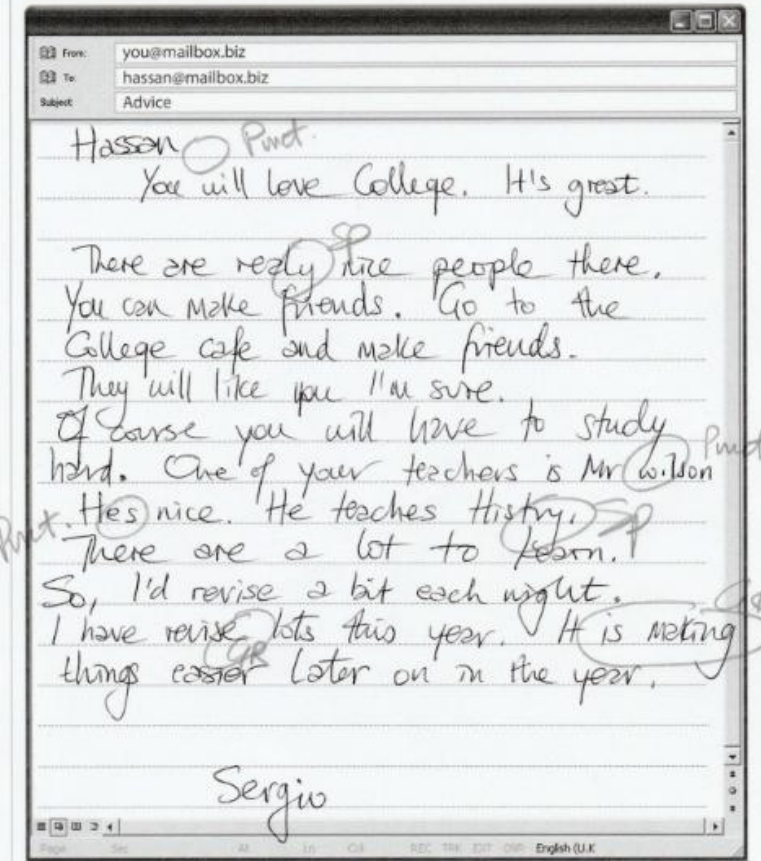 From: you@mailbox.biz
To: hassan@mailbox.biz
Subject: Advice
Hassan Punct.
You will love College. It's great.
Sp
There are realy nice people there.
You can make friends. Go to the
College cafe and make friends.
They will like you I'm sure.
Of course you will have to study
hard. One of your teachers is Mr wilson Punct
Punct. Hes nice. He teaches Histry. Sp
There are a lot to learn.
So, I'd revise a bit each night.
I have revise lots this year. It is making
GR
things easier later on in the year.
Sergio
Page Sec At Ln Col REC TRK EXT OVR English (U.K